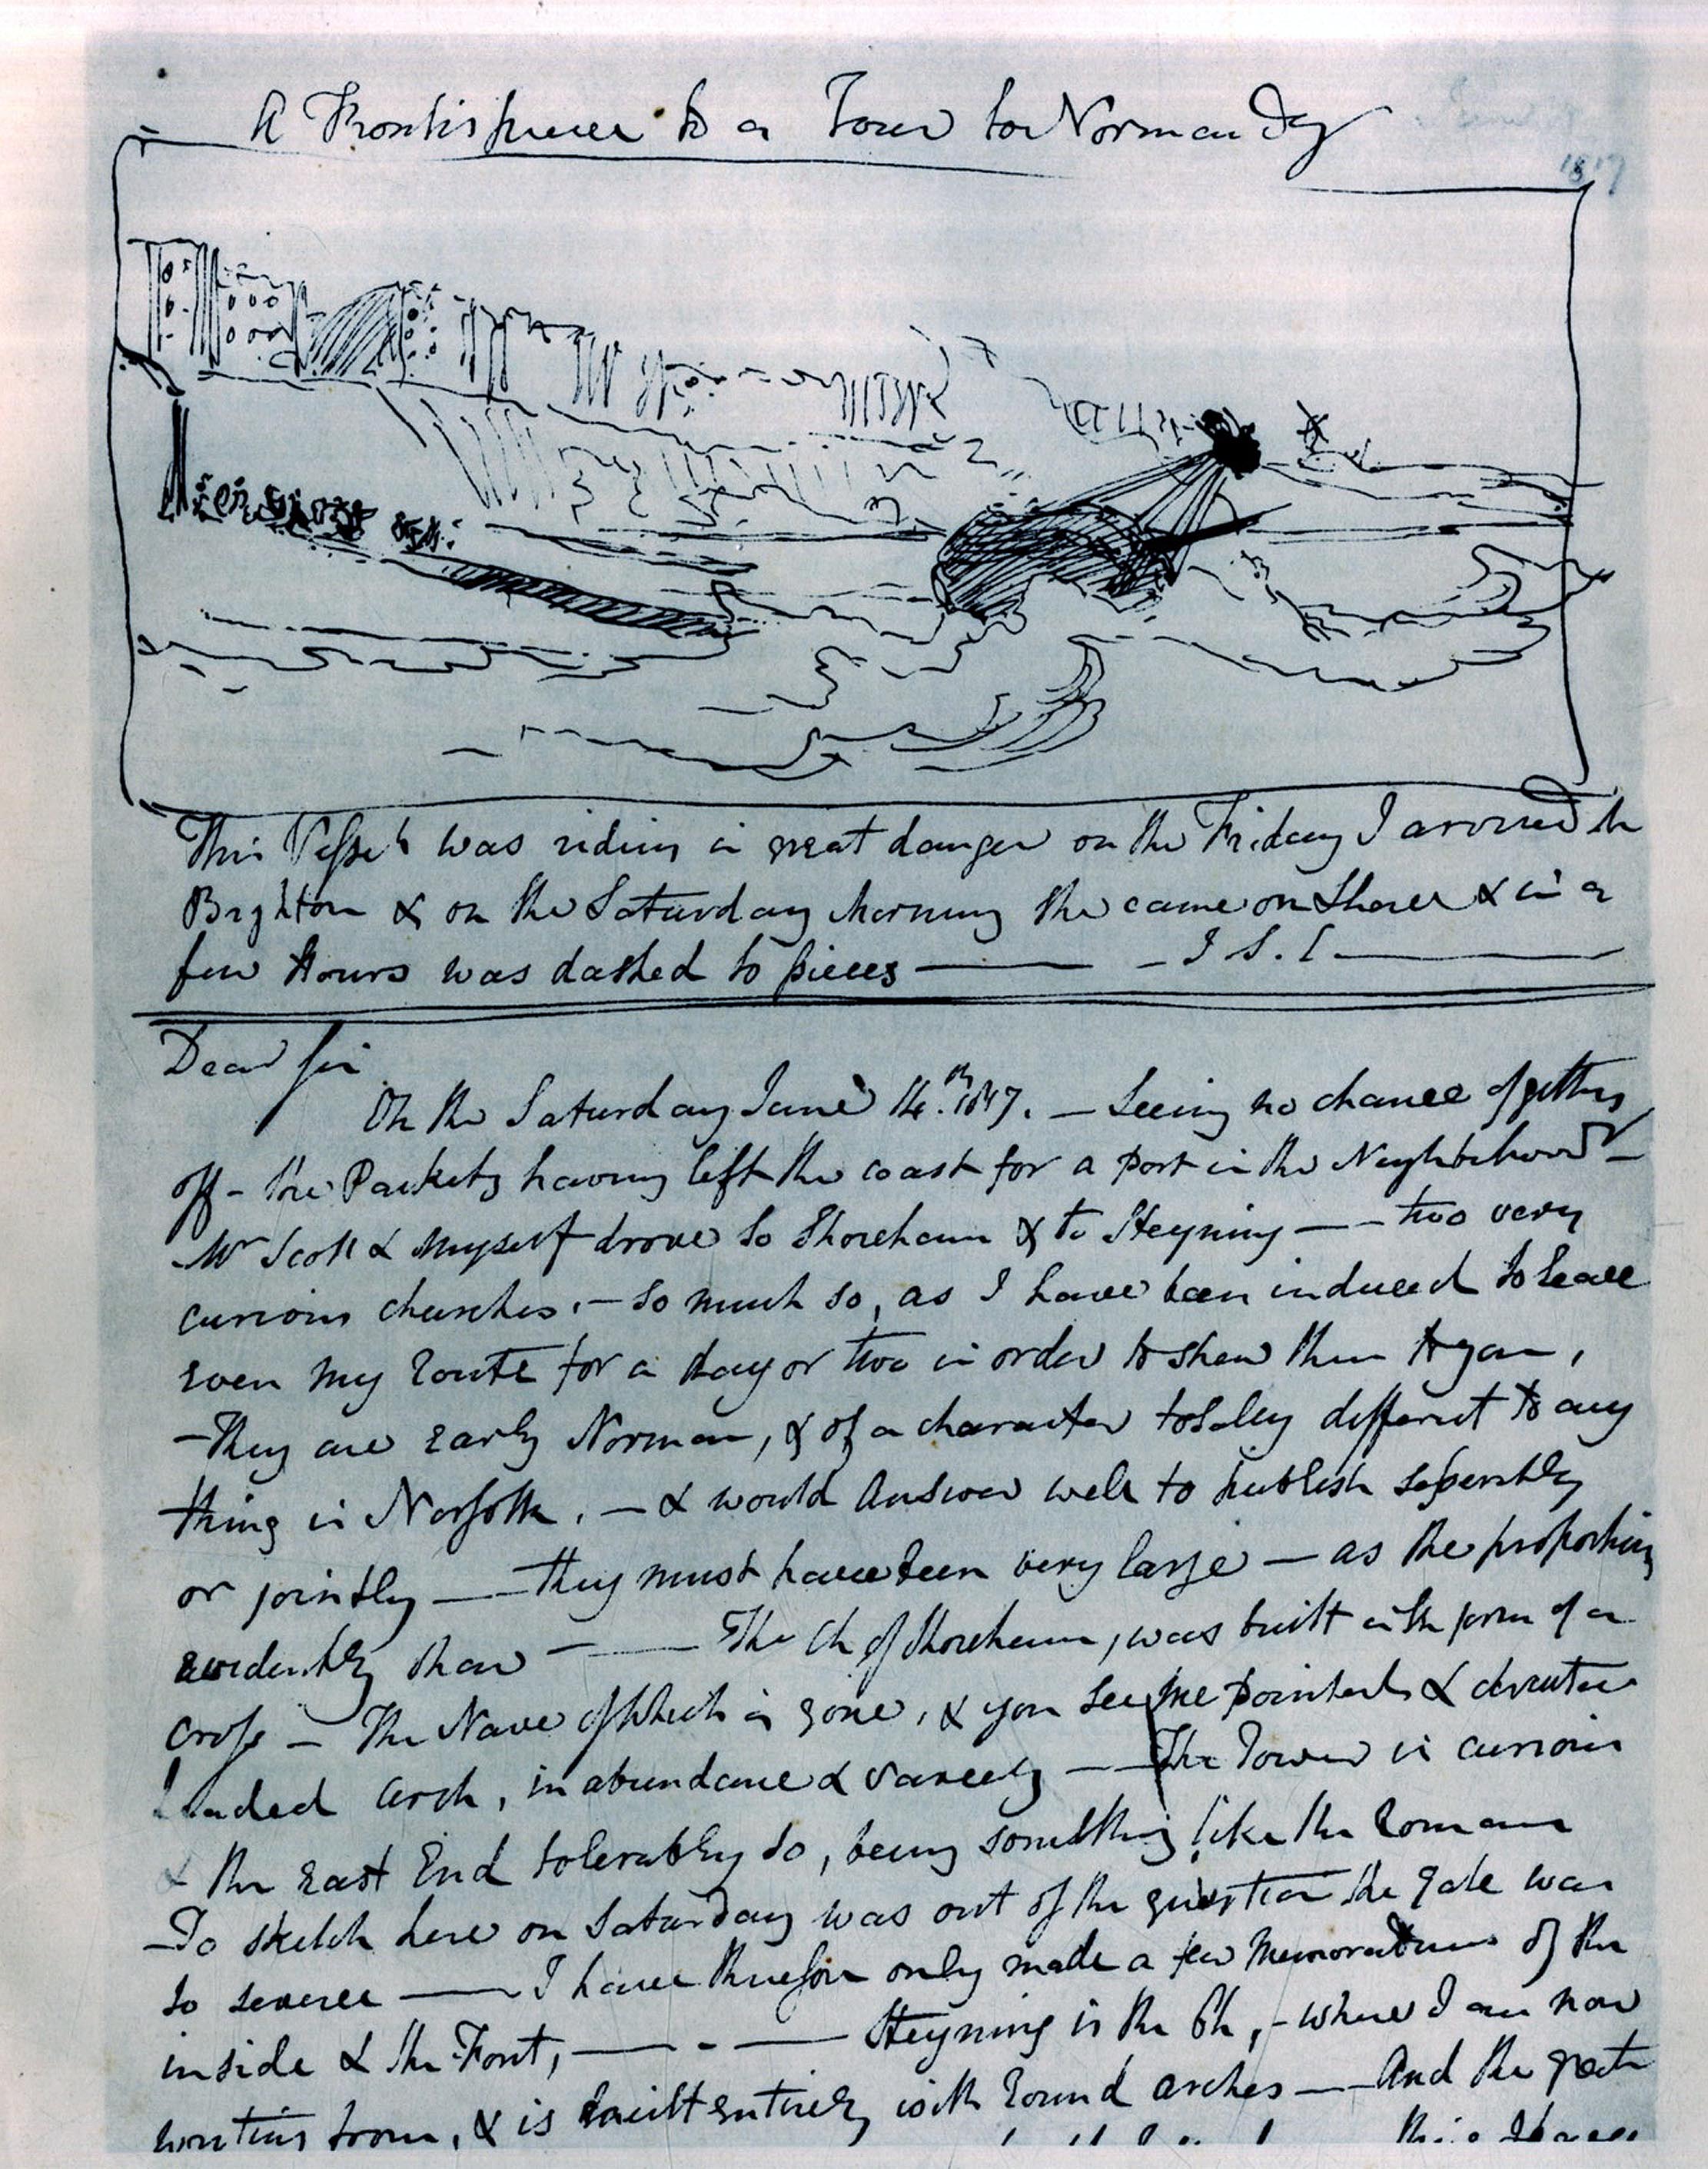 A Frontispiece to a Tour to Normandy
1817
This Vessel was riding in great danger on the Friday I arrived at
Brighton & on the Saturday Morning she came on Shore & in a
few Hours was dashed to pieces — — J S. C —
Dear Sir
On the Saturday June 14.th 1817. — Seeing no chance of getting
off - the Packets having left the coast for a port in the Neighbourhood —
Mr Scott & Myself drove to Shoreham & to Steyning — - two very
curious churches. — so much so, as I have been induced to leave
even my Route for a day or two in order to shew them to you,
- They are early Norman, & of a character totally different to any
thing in Norfolk. — & would Answer well to publish seperately
or jointly — — they must have been very large — as the proportions
evidently shew — — The Ch of Shoreham, was built in the form of a
Cross — The Nave of which is gone, & you see the pointed &
headed arch, in abundance & variety — — The Tower is curious
& the East End tolerably so, being something like the Romans
— To sketch here on Saturday was out of the question the gale was
so severe — — I have therefore only made a few Memorandums of the
inside & the Font, — - — Steyning is the Ch, - where I am now
writing from, & is built entirely with Round arches — — And the